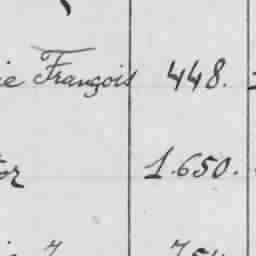 ie François 448.
tor 1.650.